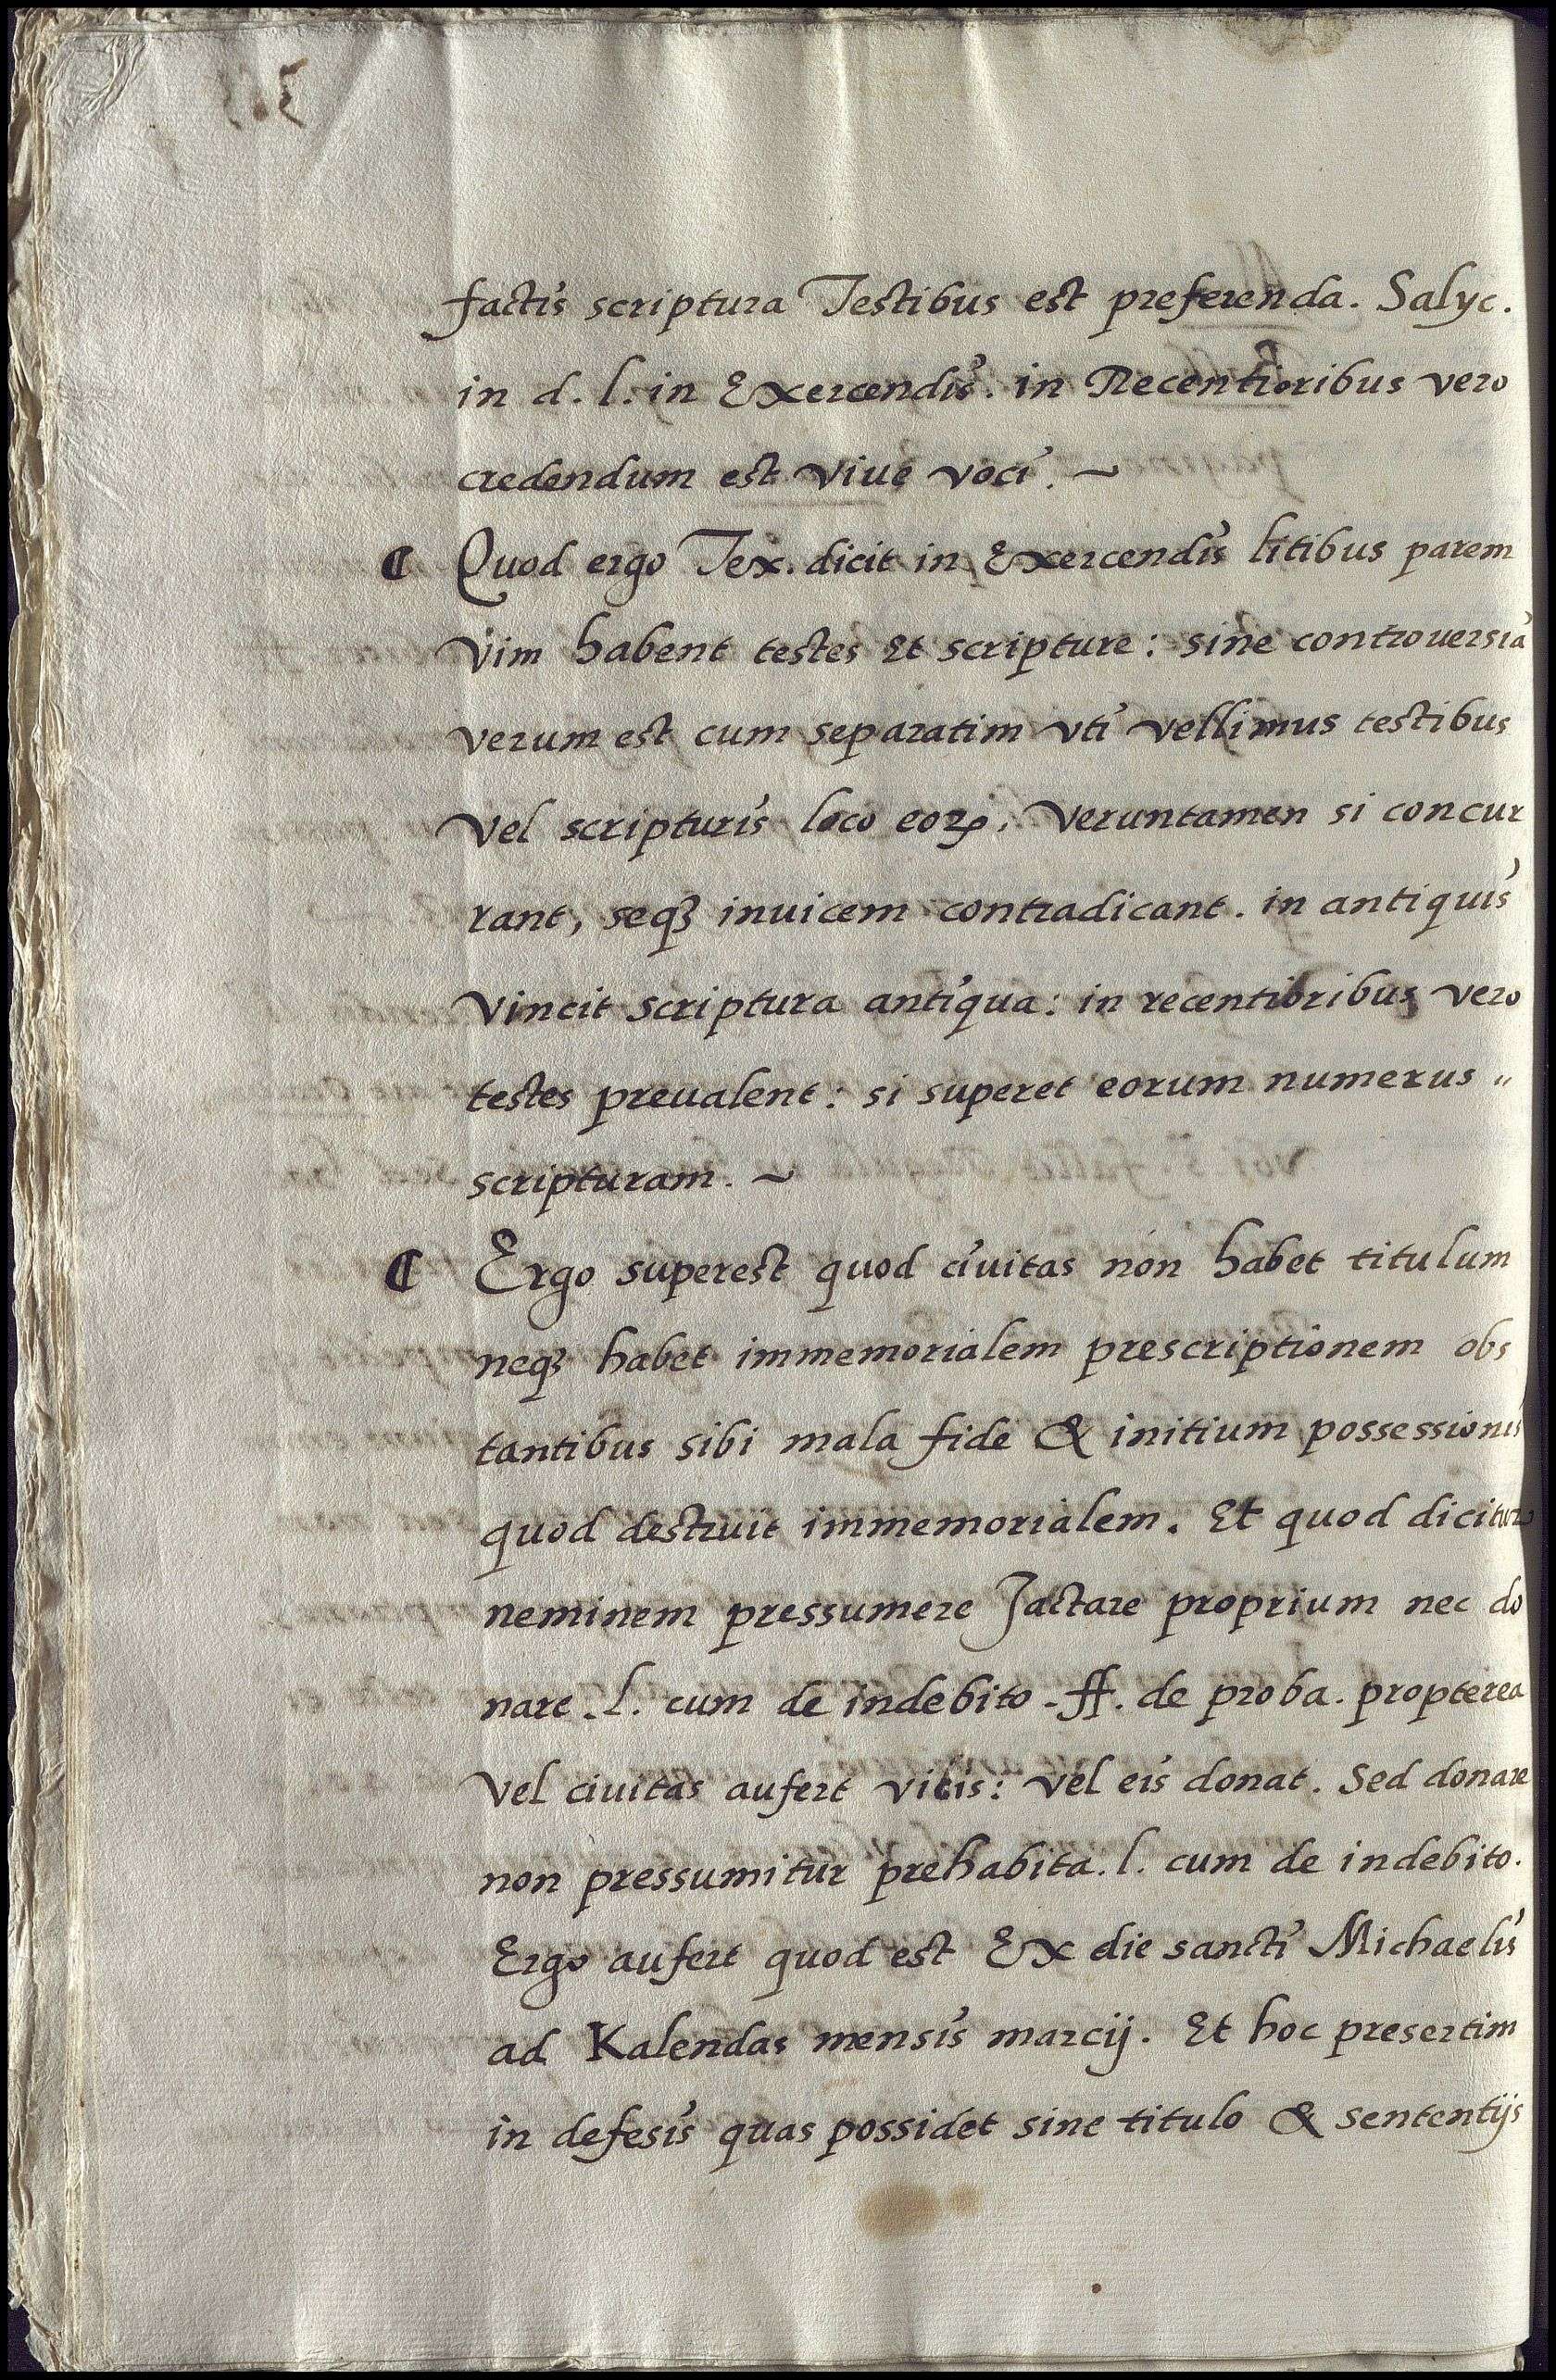 factis scriptura Testibus est preferenda. Salyc.
in d. l. in Exercendis. in Recentioribus vero
credendum est viue voci. ~
¶ Quod ergo Tex. dicit in Exercendis litibus parem
vim habent testes Et scripture: sine controuersia
verum est cum separatim vti vellimus testibus
vel scripturis loco eoꝝ. Veruntamen si concur
rant, seqꝫ inuicem contradicant. in antiquis
vincit scriptura antiqua: in recentioribus vero
testes preualent: si superet eorum numerus "
scripturam. ~
¶ Ergo superest quod ciuitas non habet titulum
neqꝫ habet immemorialem prescriptionem obs
tantibus sibi mala fide & initium possessionis
quod destruit immemorialem. Et quod dicitur
neminem pressumere Jactare proprium nec do
nare. l. cum de indebito. ff. de proba. propterea
vel ciuitas aufert vicis: vel eis donat. Sed donare
non pressumitur prehabita. l. cum de indebito.
Ergo aufert quod est Ex die sancti Michaelis
ad Kalendas mensis marcij. Et hoc presertim
in defesis quas possidet sine titulo & sententijs